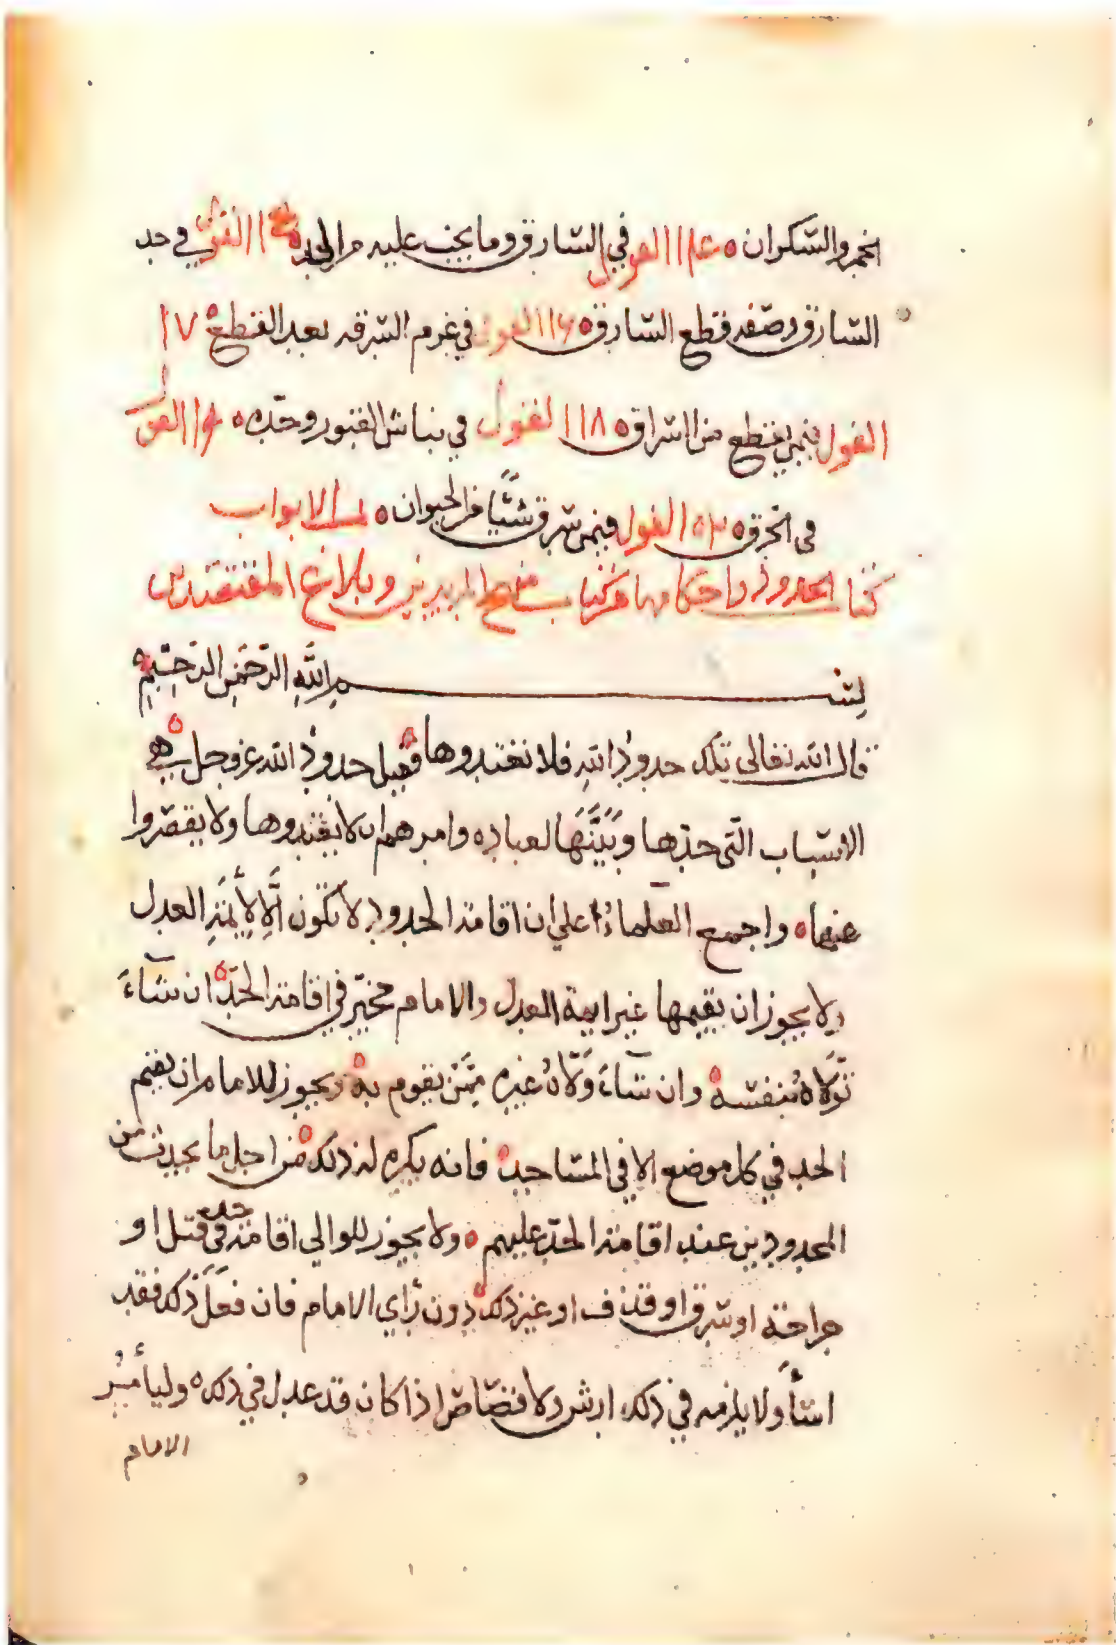 الخمر والسّكران ٥ ١١٤ القول في السّارق وما يجب عليه من الحد ١١٥ القول في حد
السّارق وصفه قطع السّارق ٥ ١١٦ القول في غرم السّرقه بعد القطع ٥ ١١٧
القول فيمن يقطع من السراق ٥ ١١٨ القول في نباش القبور وحدّه ٥ ١١٩ القول
في الحرق ٥ ١٢٠ القول فيمن سرق شَيًّا من الحيوان ٥ تمت الابواب
كتاب الحدود واحكامها من كتاب منهج المريدين وبلاغ المقتصدين
بِسْمِ اللَّهِ الرَّحْمَنِ الرَّحِيمِ
قال الله تعالى تلك حدودُ الله فلا تعتدوها فقيل حدودُ الله عز وجل هي
الاسباب التّي حدّها وَبَيَّنَهَا لعباده وامرهم ان لا يعتدوها ولا يقصّروا
عنها ٥ واجمع العلماءُ على ان اقامة الحدود لا تكون إِلَّا لِأَيِمَّةِ العدل
ولا يجوز ان يقيمها غير ايمة العدل والامام مخيّر في اقامة الحدّ ان شآءَ
تَوَّلاهُ بنفسه وان شآءَ وَلّاهُ غيره مِمَّن يقوم به ويجوز للامام ان يقيم
الحد في كل موضع الا في المساجد فانه يكره له ذلك من اجل ما يحدث من
المحدودين عند اقامة الحدّ عليهم ٥ ولا يجوز للوالي اقامة حد في قتل او
جراحة او سرق او قذف او غير ذلك دون رأي الامام فان فعَلَ ذلك فقد
اسَأَ ولا يلزمه في ذلك ارش ولا قصاص اذا كان قد عدل في ذلك ٥ وليأمُر
الامام